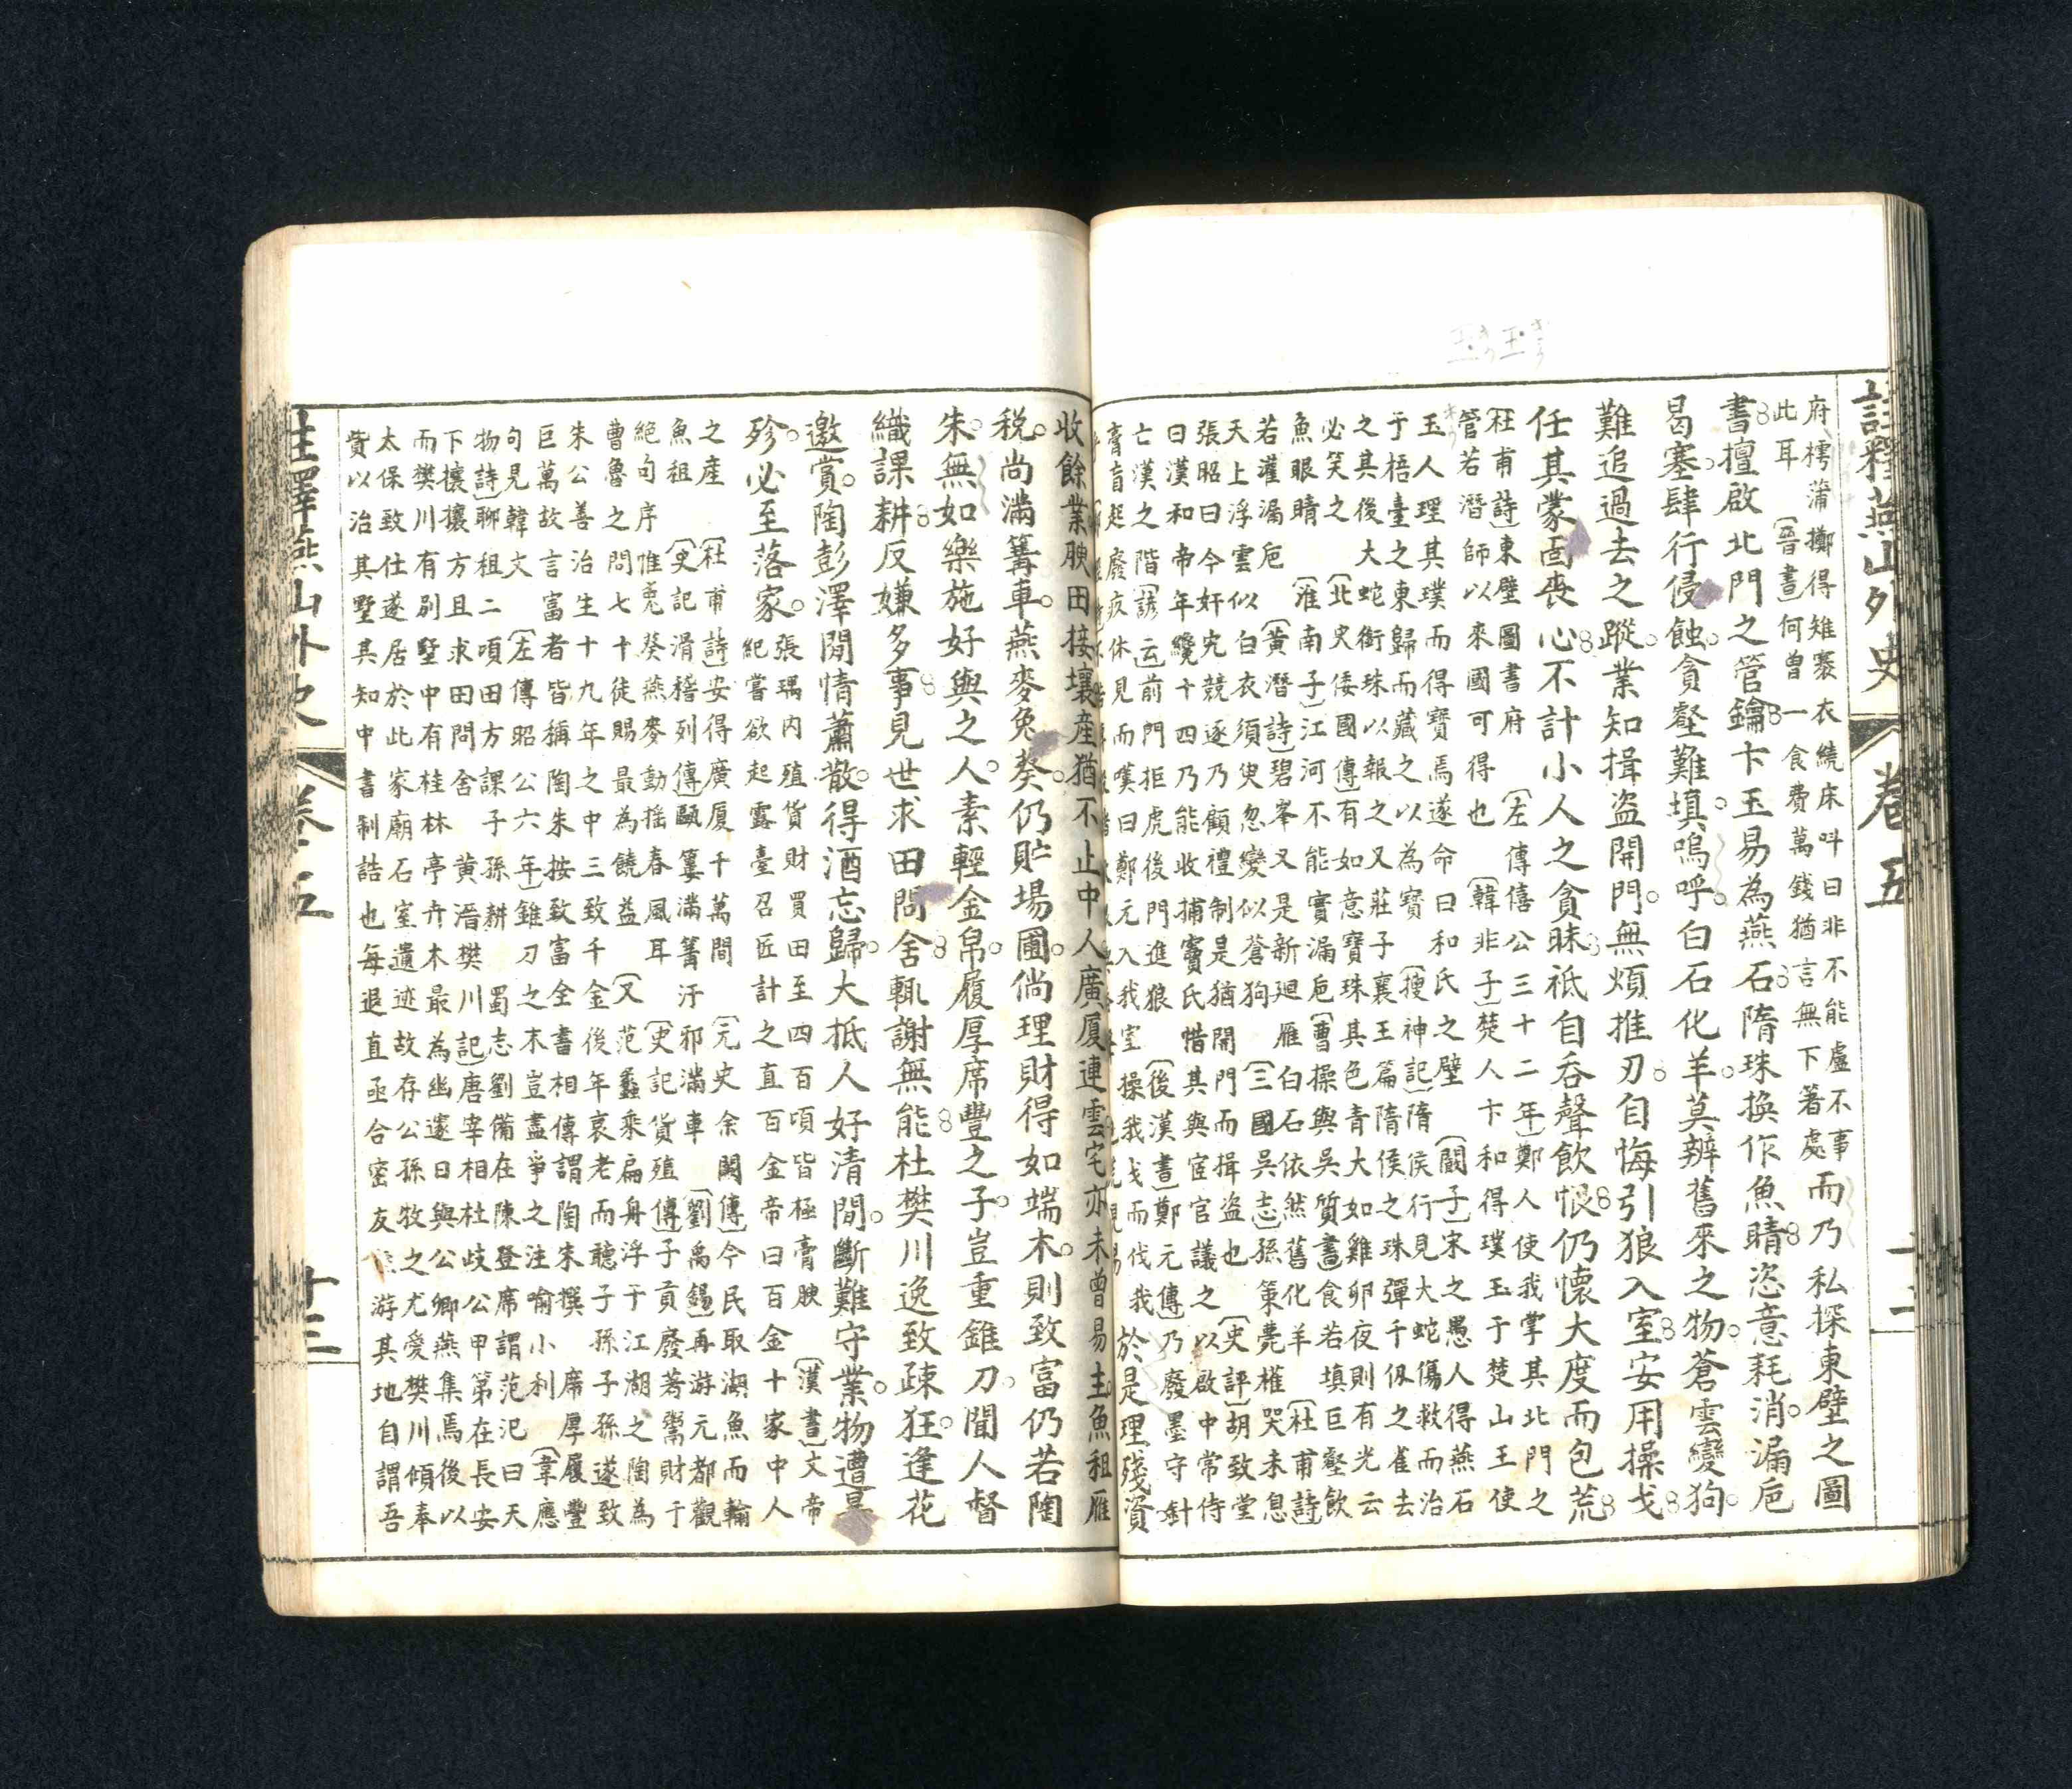 註釋燕山外史 卷五 十二
府樗蒲擲得雉褰衣繞床呌曰非不能盧不事
此耳 〔晉書〕何曾一食費萬錢猶言無下著處
而乃私探東壁之圖
書擅啟北門之管鑰卞玉易為燕石隋珠換作魚睛恣意耗消漏巵
曷塞肆行侵蝕貪壑難填嗚呼白石化羊莫辨舊來之物蒼雲變狗
難追過去之蹤業知揖盜開門無煩推刃自悔引狼入室安用操戈
任其蒙面喪心不計小人之貪昧祗自吞聲飲恨仍懷大度而包荒
〔杜甫詩〕東壁圖書府 〔左傳僖公三十二年〕鄭人使我掌其北門之
管若潛師以來國可得也 〔韓非子〕楚人卞和得璞玉于楚山王使
玉人理其璞而得寶焉遂命曰和氏之璧 〔闞子〕宋之愚人得燕石
于梧臺之東歸而藏之以為寶 〔搜神記〕隋侯行見大蛇傷救而治
之其後大蛇銜珠以報之又莊子襄王篇隋侯之珠彈千仞之雀去
必笑之 〔北史倭國傳〕有如意寶珠其色青大如雞卵夜則有光云
魚眼睛 〔淮南子〕江河不能實漏巵 〔曹操與吳質書〕食若填巨壑飲
若灌漏巵 〔黃潛詩〕碧峯又是新迴雁白石依然舊化羊 〔杜甫詩〕
天上浮雲似白衣須臾忽變似蒼狗 〔三國吳志〕孫策薨權哭未息
張昭曰今奸宄競逐乃顧禮制是猶開門而揖盜也 〔史評〕胡致堂
曰漢和帝年纔十四乃能收捕竇氏惜其與宦官議之以啟中常侍
亡漢之階〔諺云〕前門拒虎後門進狼 〔後漢書鄭元傳〕乃廢墨守針
膏肓起廢疾休見而嘆曰鄭元入我室操我戈而伐我
於是理殘資
收餘業腴田接壤產猶不止中人廣厦連雲宅亦未曾易主魚租雁
稅尚滿篝車燕麥兔葵仍貯場圃倘理財得如端木則致富仍若陶
朱無如樂施好與之人素輕金帛履厚席豐之子豈重錐刀聞人督
織課耕反嫌多事見世求田問舍輒謝無能杜樊川逸致疎狂逢花
邀賞陶彭澤閒情蕭散得酒忘歸大抵人好清閒斷難守業物遭暴
殄必至落家
張瑀內殖貨財買田至四百頃皆極膏腴 〔漢書〕文帝
紀嘗欲起露臺召匠計之直百金帝曰百金十家中人
之產 〔杜甫詩〕安得廣厦千萬間 〔元史余闕傳〕今民取湖魚而輸
魚租 〔史記滑稽列傳〕甌窶滿篝汙邪滿車 〔劉禹錫〕再游元都觀
絕句序惟兔葵燕麥動搖春風耳 〔史記貨殖傳〕子貢廢著鬻財于
曹魯之間七十徒賜最為饒益 〔又〕范蠡乘扁舟浮于江湖之陶為
朱公善治生十九年之中三致千金後年衰老而聽子孫子孫遂致
巨萬故言富者皆稱陶朱按致富全書相傳謂陶朱撰 席厚履豐
句見韓文 〔左傳昭公六年〕錐刀之末豈盡爭之注喻小利 〔韋應
物詩〕聊租二頃田方課子孫耕 蜀志劉備在陳登席謂范汜曰天
下攘攘方且求田問舍 黃潛樊川記〕唐宰相杜岐公甲第在長安
而樊川有別墅中有桂林亭卉木最為幽邃日與公卿燕集焉後以
太保致仕遂居於此家廟石室遺迹故存公孫牧之尤愛樊川傾奉
貲以治其墅其知中書制誥也每退直亟合密友游其地自謂吾
註釋燕山外史 卷五 十三